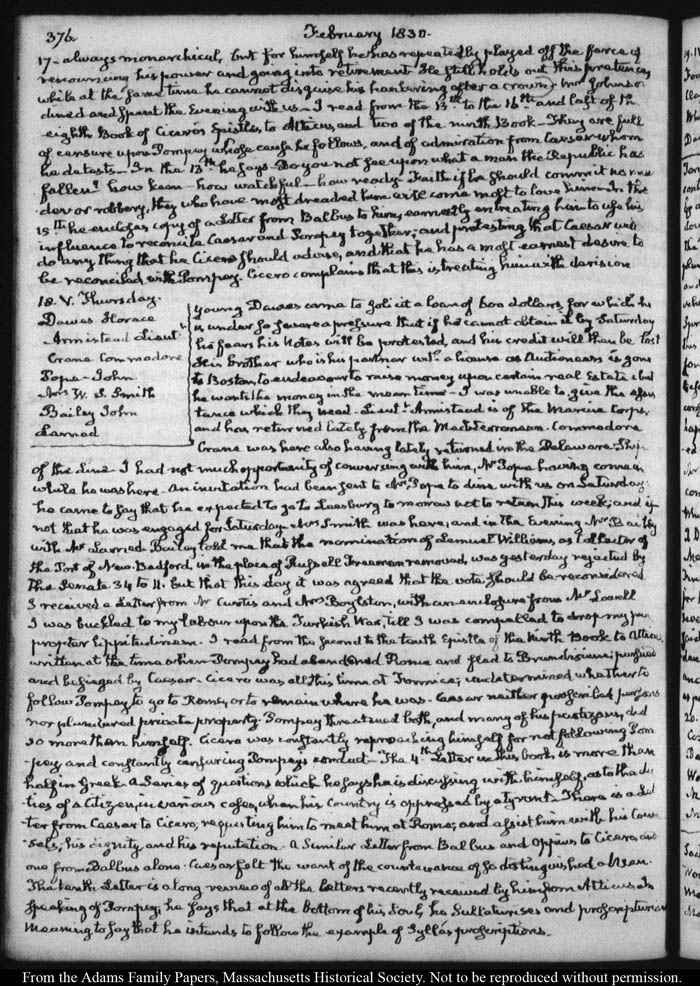 376
February 1830.
17 - always monarchical, but for himself he has repeatedly played off the farce of
renouncing his power and going into retirement. He still holds out this pretence,
while at the same time he cannot disguise his hankering after a crown. Mr Johnson
dined and spent the Evening with us - I read from the 13th to the 16th and last of the
eighth Book of Cicero's Epistles to Atticus, and two of the ninth Book - They are full
of censure upon Pompey whose cause he follows, and of admiration from Caesar whom
he detests - In the 13th he says - Do you not see upon what a man the Republic has
fallen? how keen - how watchful - how ready - Faith if he should commit no mur
der or robbery, they who have most dreaded him will come most to love him - In the
15th he encloses copy of a Letter from Balbus to him, earnestly entreating him to use his
influence to reconcile Caesar and Pompey together; and protesting that Caesar will
do any thing that he Cicero should advise, and that he has a most earnest desire to
be reconciled with Pompey. Cicero complains that this is treating him with derision
18. V. Thursday.
Dawes Horace
Armistead Lieut
Crane Commodore
Pope - John
Mrs W. S. Smith
Bailey John
Larned
Young Dawes came to solicit a loan of 600 dollars, for which he
is under so severe a pressure that if he cannot obtain it by Saturday
he fears his Notes will be protested, and his credit will then be lost
His brother who is his partner in a house as Auctioneers is gone
to Boston, to endeavour to raise money upon certain real Estate; but
he wants the money in the mean time - I was unable to give the assis
tance which they need - Lieut. Armistead is of the Marine Corps,
and has returned lately from the Mediterranean. Commodore
Crane was here also having lately returned in the Delaware Ship
of the Line - I had not much opportunity of conversing with him, Mr Pope having come in
while he was here - An invitation had been sent to Mr Pope to dine with us on Saturday
he came to say that he expected to go to Leesburg to morrow not to return this week; and if
not that he was engaged for Saturday - Mrs Smith was here, and in the Evening Mr Bailey
with Mr Larned. Bailey told me that the nomination of Lemuel Williams, as Collector of
the Port of New-Bedford, in the place of Russell Freeman removed, was yesterday rejected by
the Senate 34 to 11. but that this day it was agreed that the vote should be reconsidered
I received a Letter from Mr Curtis and Mrs Boylston, with an enclosure from Mr Lowell
I was buckled to my labour upon the Turkish War, till I was compelled to drop my pen
propter lippitudinem - I read from the second to the tenth Epistle of the Ninth Book to Atticus
written at the time when Pompey had abandoned Rome and fled to Brundisium; pursued
and besieged by Caesar - Cicero was all this time at Formiae; undetermined whether to
follow Pompey to go to Rome, or to remain where he was - Caesar neither proscribed persons
nor plundered private property. Pompey threatened both, and many of his partizans, did
so more than himself. Cicero was constantly reproaching himself for not following Pom
-pey and constantly censuring Pompey's conduct - The 4th Letter in this book is more than
half in Greek. A Series of questions which he says he is discussing with himself, as to the du
ties of a Citizen, in various cases, when his Country is oppressed by a tyrant - There is a Let
ter from Caesar to Cicero, requesting him to meet him at Rome; and assist him with his Coun
-sels, his dignity, and his reputation - A Similar Letter from Balbus and Oppius to Cicero, and
one from Balbus alone - Caesar felt the want of the countenance of so distinguished a Man.
The tenth Letter is a long review of all the letters recently received by him from Atticus. In
speaking of Pompey, he says that at the bottom of his Soul, he Sullaturises and proscripturises
meaning to say that he intends to follow the example of Sylla's proscriptions.
From the Adams Family Papers, Massachusetts Historical Society. Not to be reproduced without permission.